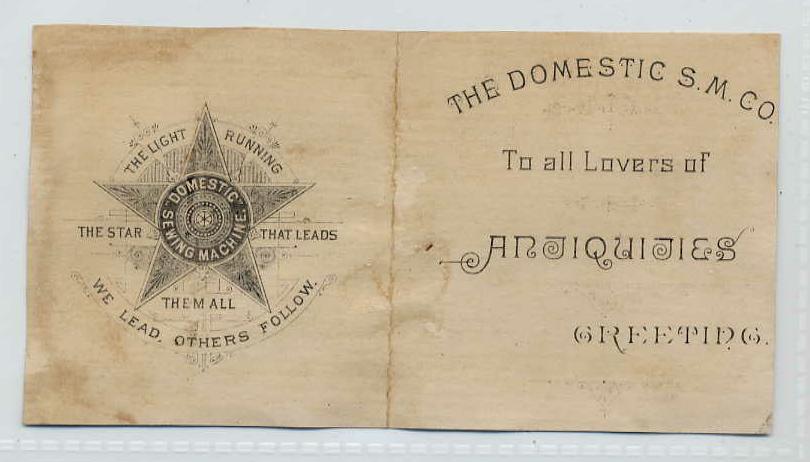 THE LIGHT RUNNING
DOMESTIC
SEWING MACHINE.
THE STAR THAT LEADS
THEM ALL
WE LEAD, OTHERS FOLLOW.
THE DOMESTIC S.M.CO.
To all Lovers of
ANTIQUITIES
GREETING.